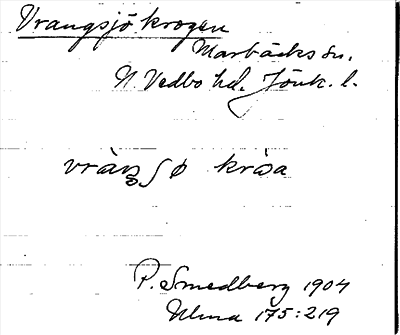 Vrangsjö krogen
Marbäcks sn.
N. Vedbo hd. Jönk. l.
vràŋʃø krɔ̀a
P. Smedberg 1904
Ulma 175:219